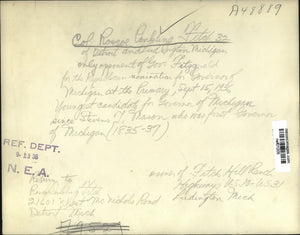 A48819
Col. Roscoe Conkling Fitch 32
of Detroit and Ludington Michigan
only opponent of Gov. Fitzgerald
for the Republican nomination for Governor of
Michigan at the Primary, Sept 15, 1936
Youngest candidate for Governor of Michigan
since Stevens T. Mason who was first Governor
of Michigan (1835-37)
REF. DEPT.
9-23 36
N. E. A.
Return to
21601 West McNichols Road
Detroit Mich
owner of Fitch Hill Ranch
Highways US10-US31
Ludington Mich